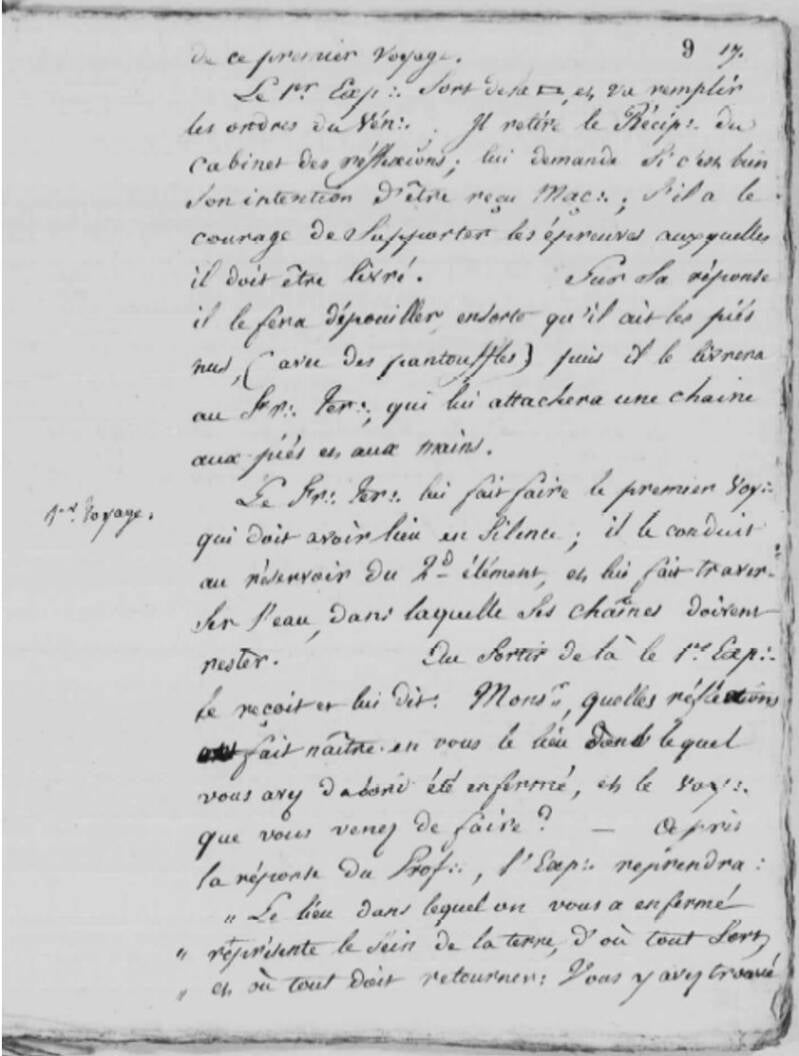 9 17.
de ce premier Voyage.
Le 1er. Exp∴ Sort de la ▭, et va remplir
les ordres du Vén∴. Il retire le Récip∴ du
Cabinet des réfflexions; lui demande Si c'est bien
Son intention d'être reçu Maç∴; S'il a le
courage de Supporter les épreuves auxquelles
il doit être livré. Sur Sa réponse
il le fera dépouiller, ensorte qu'il ait les piés
nus, (avec des pantouffles) puis il le livrera
au Fr∴ Ter∴, qui lui attachera une chaine
aux piés et aux mains.
1er. Voyage.
Le Fr∴ Ter∴ lui fait faire le premier Voy∴
qui doit avoir lieu en Silence; il le conduit
au réservoir du 2d élément, et lui fait traver-
Ser l'eau, dans laquelle Ses chaînes doivent
rester. Au Sortir de là le 1er Exp∴
le reçoit et lui dit: Monsr, quelles réflexions
fait naître en vous le lieu dans lequel
vous avez d'abord été enfermé, et le Voy∴
que vous venez de faire? — Après
la réponse du Prof∴, l'Exp∴ reprendra:
" Le lieu dans lequel on vous a enfermé
" représente le Sein de la terre, d'où tout Sort,
" et où tout doit retourner: Vous y avez trouvé